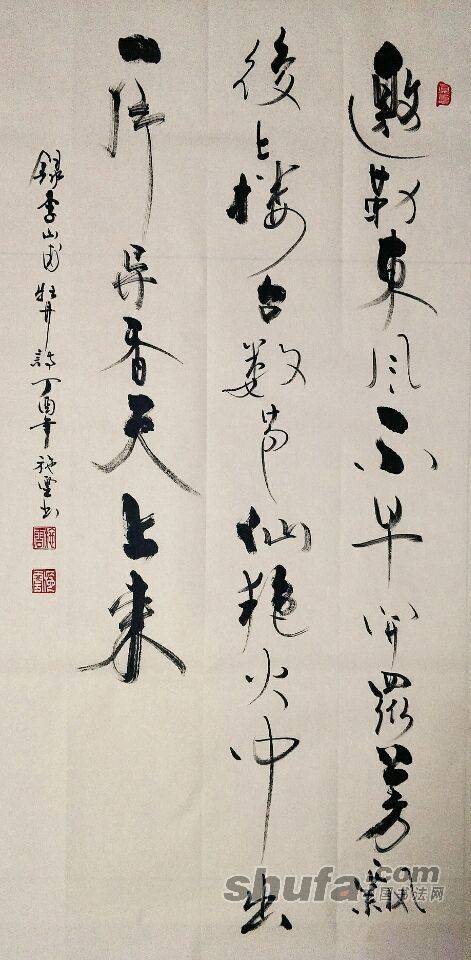 邀勒東风不早开眾芳飄
後上楼台数苞仙艳火中出
一片异香天上来
錄李山甫牡丹詩丁酉年施
shufa.com
中国书法网